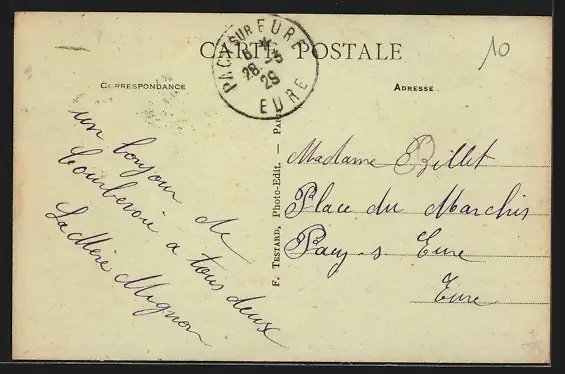 CARTE POSTALE
PACY SUR EURE
28
29
EURE
10
CORRESPONDANCE
ADRESSE
un bonjour de
a tous deux
La Mère Mignon
F. TESTARD, Photo-Edit. - Paris
Madame Billet
Place du Marchis
Pacy-s Eure
Eure